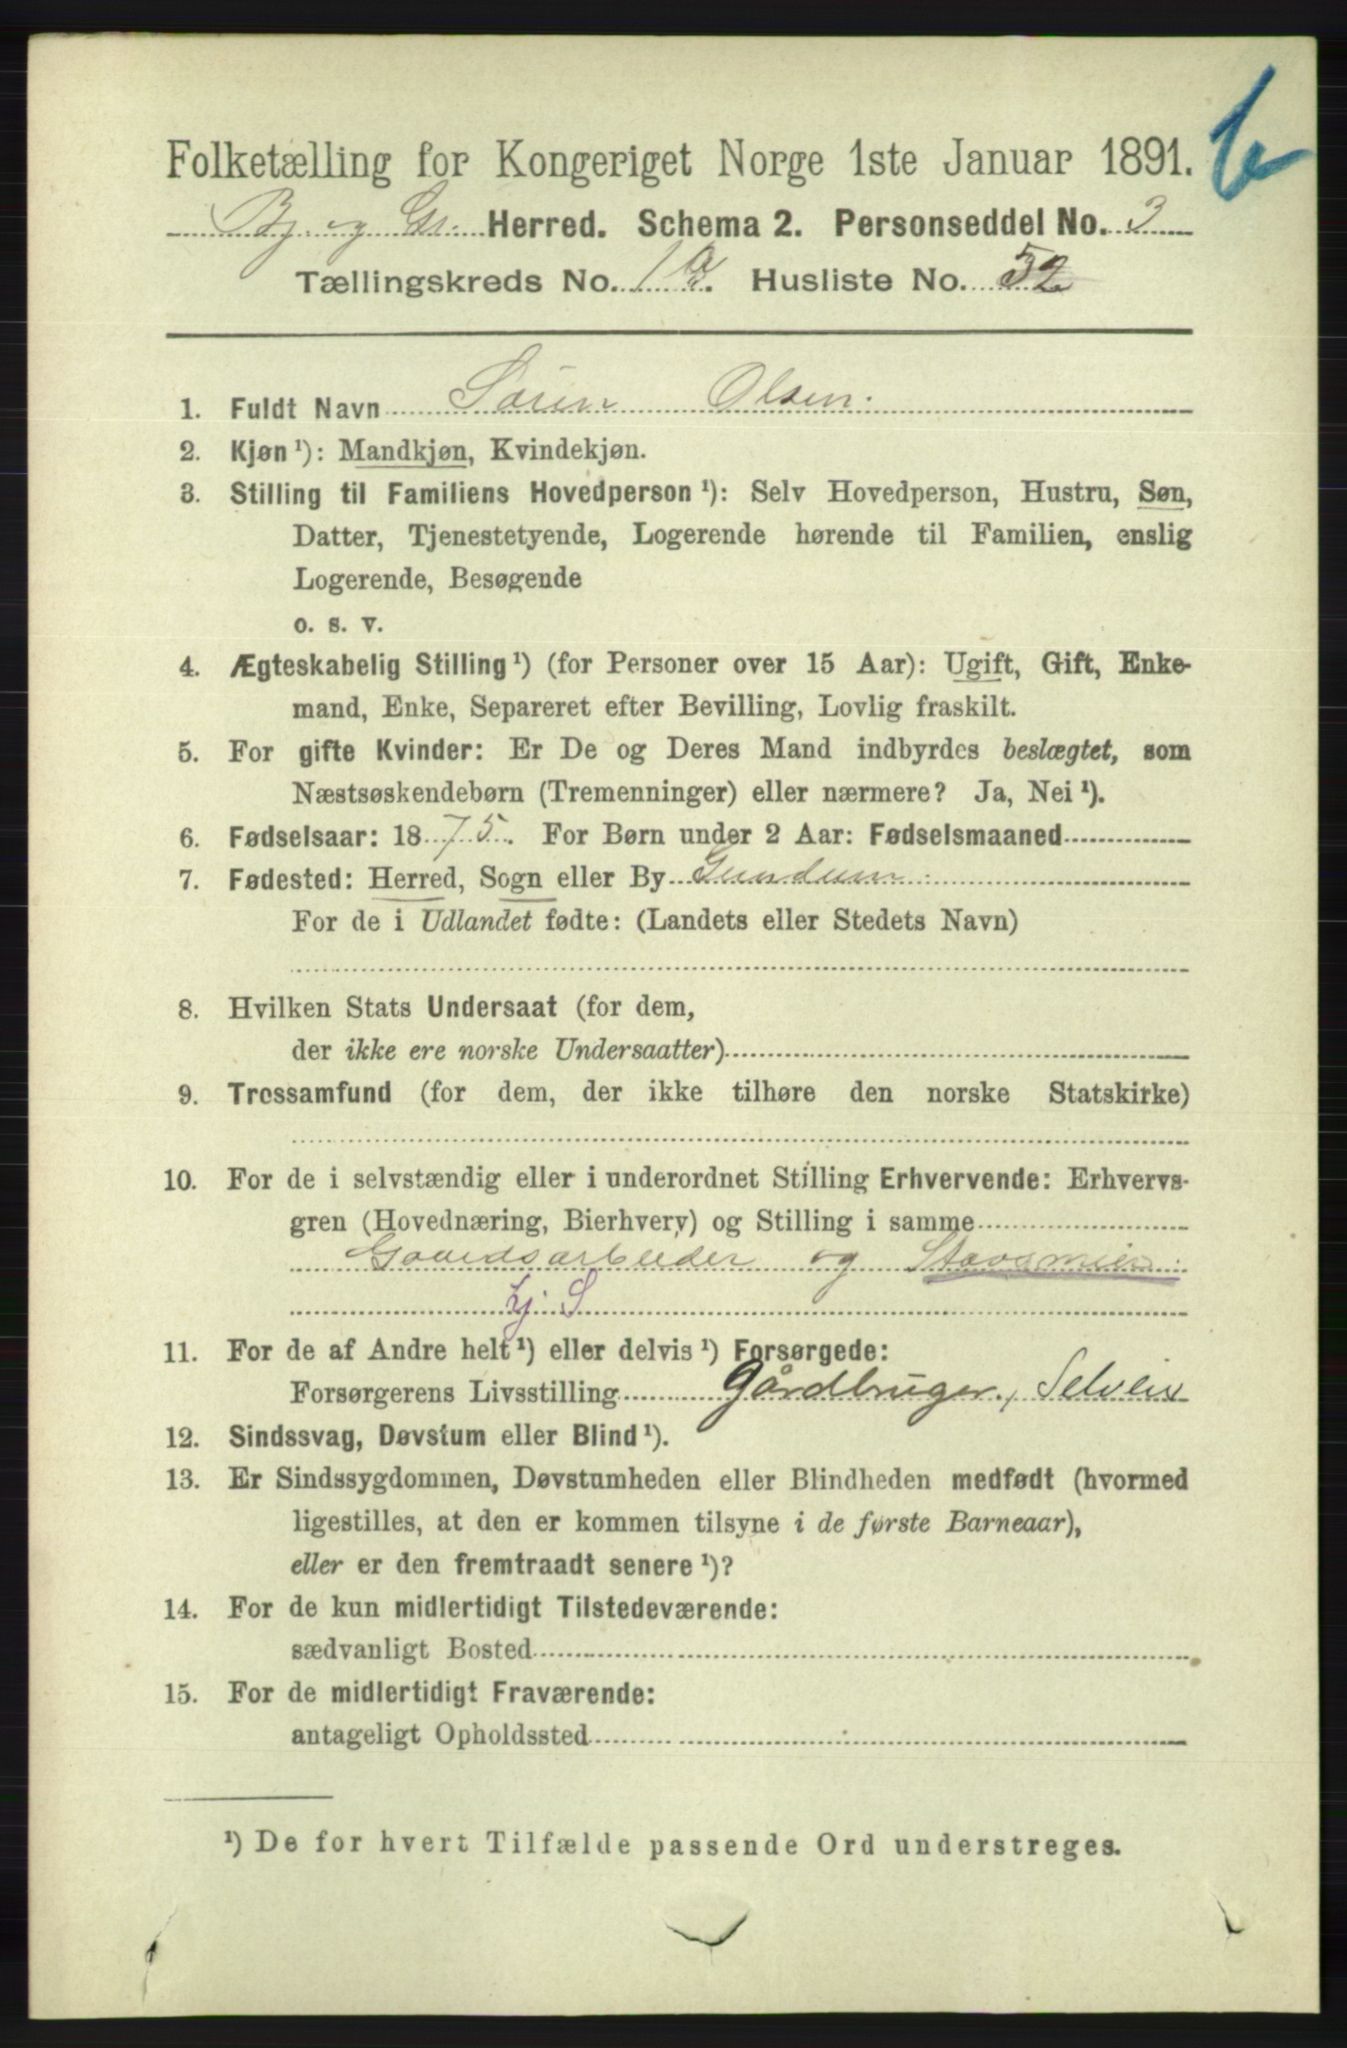 Folketælling for Kongeriget Norge 1ste Januar 1891.
Bj. og Gr. Herred. Schema 2. Personseddel No. 3
Tællingskreds No. 1a. Husliste No. 52
1. Fuldt Navn Søren Olsen.
2. Kjøn¹): Mandkjøn, Kvindekjøn.
3. Stilling til Familiens Hovedperson¹): Selv Hovedperson, Hustru, Søn,
Datter, Tjenestetyende, Logerende hørende til Familien, enslig
Logerende, Besøgende
o. s. v.
4. Ægteskabelig Stilling¹) (for Personer over 15 Aar): Ugift, Gift, Enke-
mand, Enke, Separeret efter Bevilling, Lovlig fraskilt.
5. For gifte Kvinder: Er De og Deres Mand indbyrdes beslægtet, som
Næstsøskendebørn (Tremenninger) eller nærmere? Ja, Nei¹).
6. Fødselsaar: 1875. For Børn under 2 Aar: Fødselsmaaned
7. Fødested: Herred, Sogn eller By
For de i Udlandet fødte: (Landets eller Stedets Navn)
8. Hvilken Stats Undersaat (for dem,
der ikke ere norske Undersaatter)
9. Trossamfund (for dem, der ikke tilhøre den norske Statskirke)
10. For de i selvstændig eller i underordnet Stilling Erhvervende: Erhvervs-
gren (Hovednæring, Bierhverv) og Stilling i samme
Gaardsarbeider og
S
11. For de af Andre helt¹) eller delvis¹) Forsørgede:
Forsørgerens Livsstilling Gårdbruger, Selveier
12. Sindssvag, Døvstum eller Blind¹).
13. Er Sindssygdommen, Døvstumheden eller Blindheden medfødt (hvormed
ligestilles, at den er kommen tilsyne i de første Barneaar),
eller er den fremtraadt senere¹)?
14. For de kun midlertidigt Tilstedeværende:
sædvanligt Bosted
15. For de midlertidigt Fraværende:
antageligt Opholdssted
¹) De for hvert Tilfælde passende Ord understreges.